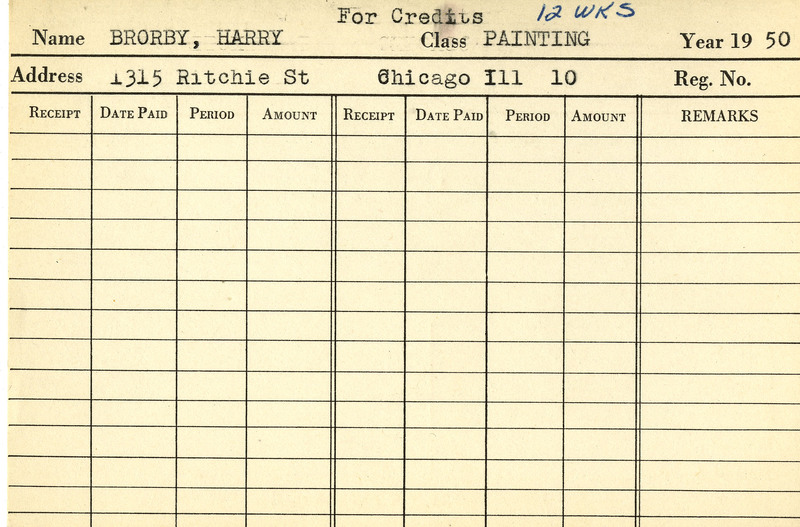 For Credits 12 WKS
Name BRORBY, HARRY Class PAINTING Year 19 50
Address 1315 Ritchie St Chicago Ill 10 Reg. No.
RECEIPT DATE PAID PERIOD AMOUNT RECEIPT DATE PAID PERIOD AMOUNT REMARKS